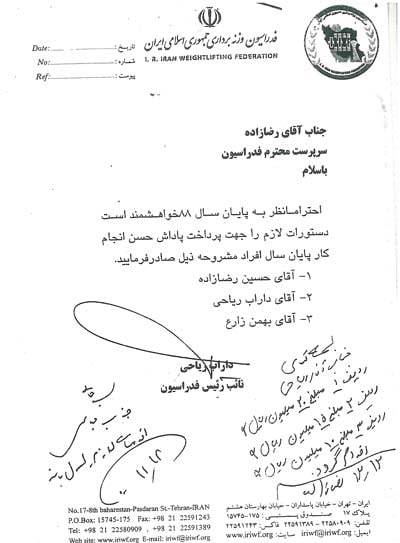 فدراسیون وزنه برداری جمهوری اسلامی ایران
I. R. IRAN WEIGHTLIFTING FEDERATION
تاریخ : Date:
شماره : No:
پیوست : Ref:
جناب آقای رضازاده
سرپرست محترم فدراسیون
باسلام
احترامانظر به پایان سال ۸۸خواهشمند است
دستورات لازم را جهت پرداخت پاداش حسن انجام
کار پایان سال افراد مشروحه ذیل صادرفرمایید.
۱- آقای حسین رضازاده
۲- آقای داراب ریاحی
۳- آقای بهمن زارع
داراب ریاحی
نائب رئیس فدراسیون
جناب آقای ریاحی
ردیف ۱ مبلغ ۲۰ میلیون ریال
ردیف ۲ مبلغ ۱۵ میلیون ریال
ردیف ۳ مبلغ ۱۰ میلیون ریال
اقدام گردد
۱۲/۱۲
No.17-8th baharestan-Pasdaran St.-Tehran-IRAN
P.O.Box: 15745-175 Fax: +98 21 22591243
Tel: +98 21 22580909 , +98 21 22591389
Web site: www.iriwf.org - E-mail: iriwf@iriwf.org
ایران - تهران - خیابان پاسداران - خیابان بهارستان هشتم
پلاک ۱۷ صندوق پستی : ۱۷۵-۱۵۷۴۵
تلفن : ۲۲۵۸۰۹۰۹ - ۲۲۵۹۱۳۸۹ فاکس: ۲۲۵۹۱۲۴۳
ایمیل: iriwf@iriwf.org سایت: www.iriwf.org